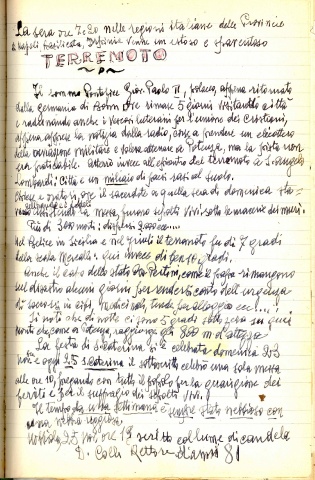 La sera ore 7,20 nelle regioni italiane delle Provincie
Napoli Basilicata, Irpinia venne un esteso e spaventoso
TERREMOTO
Il sommo Pontefice Giov. Paolo II, polacco, appena ritornato
dalla Germania di Bonn ove rimase 5 giorni visitando città
e radunando anche i Vescovi luterani per l'unione dei cristiani,
appena apprese la notizia dalla radio, pensa a prendere un elicottero
della aviazione militare e poteva atterrare a Potenza, ma la pista non
era praticabile. Atterrò invece all'epicentro del terremoto a S. Angelo
Lombardi: Città e un
chiese e ove il sacerdote in quella sera di domenica
la Messa, furono sepolti vivi sotto le macerie dei muri.
Più di 300 morti: dispersi
nel Belice in Sicilia e nel Friuli il terremoto fu di 7 gradi
della scala Mercalli. Qui invece di gradi.
Anche il capo dello stato On. Pertini, come il papa rimangono
sul disastro alcuni giorni per rendersi conto dell'urgenza
di soccorsi in cibi, medicinali, tende per alloggio ecc...!
Si noti che di notte ci sono 5 gradi sotto zero su quei
monti che, come a Potenza, raggiunge gli 800 m d'altezza
La festa di S. Caterina si è celebrata domenica 23
ma oggi 25 S. Caterina il sottoscritto celebrò una sola messa
alle ore 10, pregando con tutto il popolo per la guarigione dei
feriti e per il suffragio di sepolti vivi!
Il tempo da una settimana è sempre stato nebbioso con
una nebbia
25 ore 19 scritto col lume di candela
D. Rettore d'anni 81